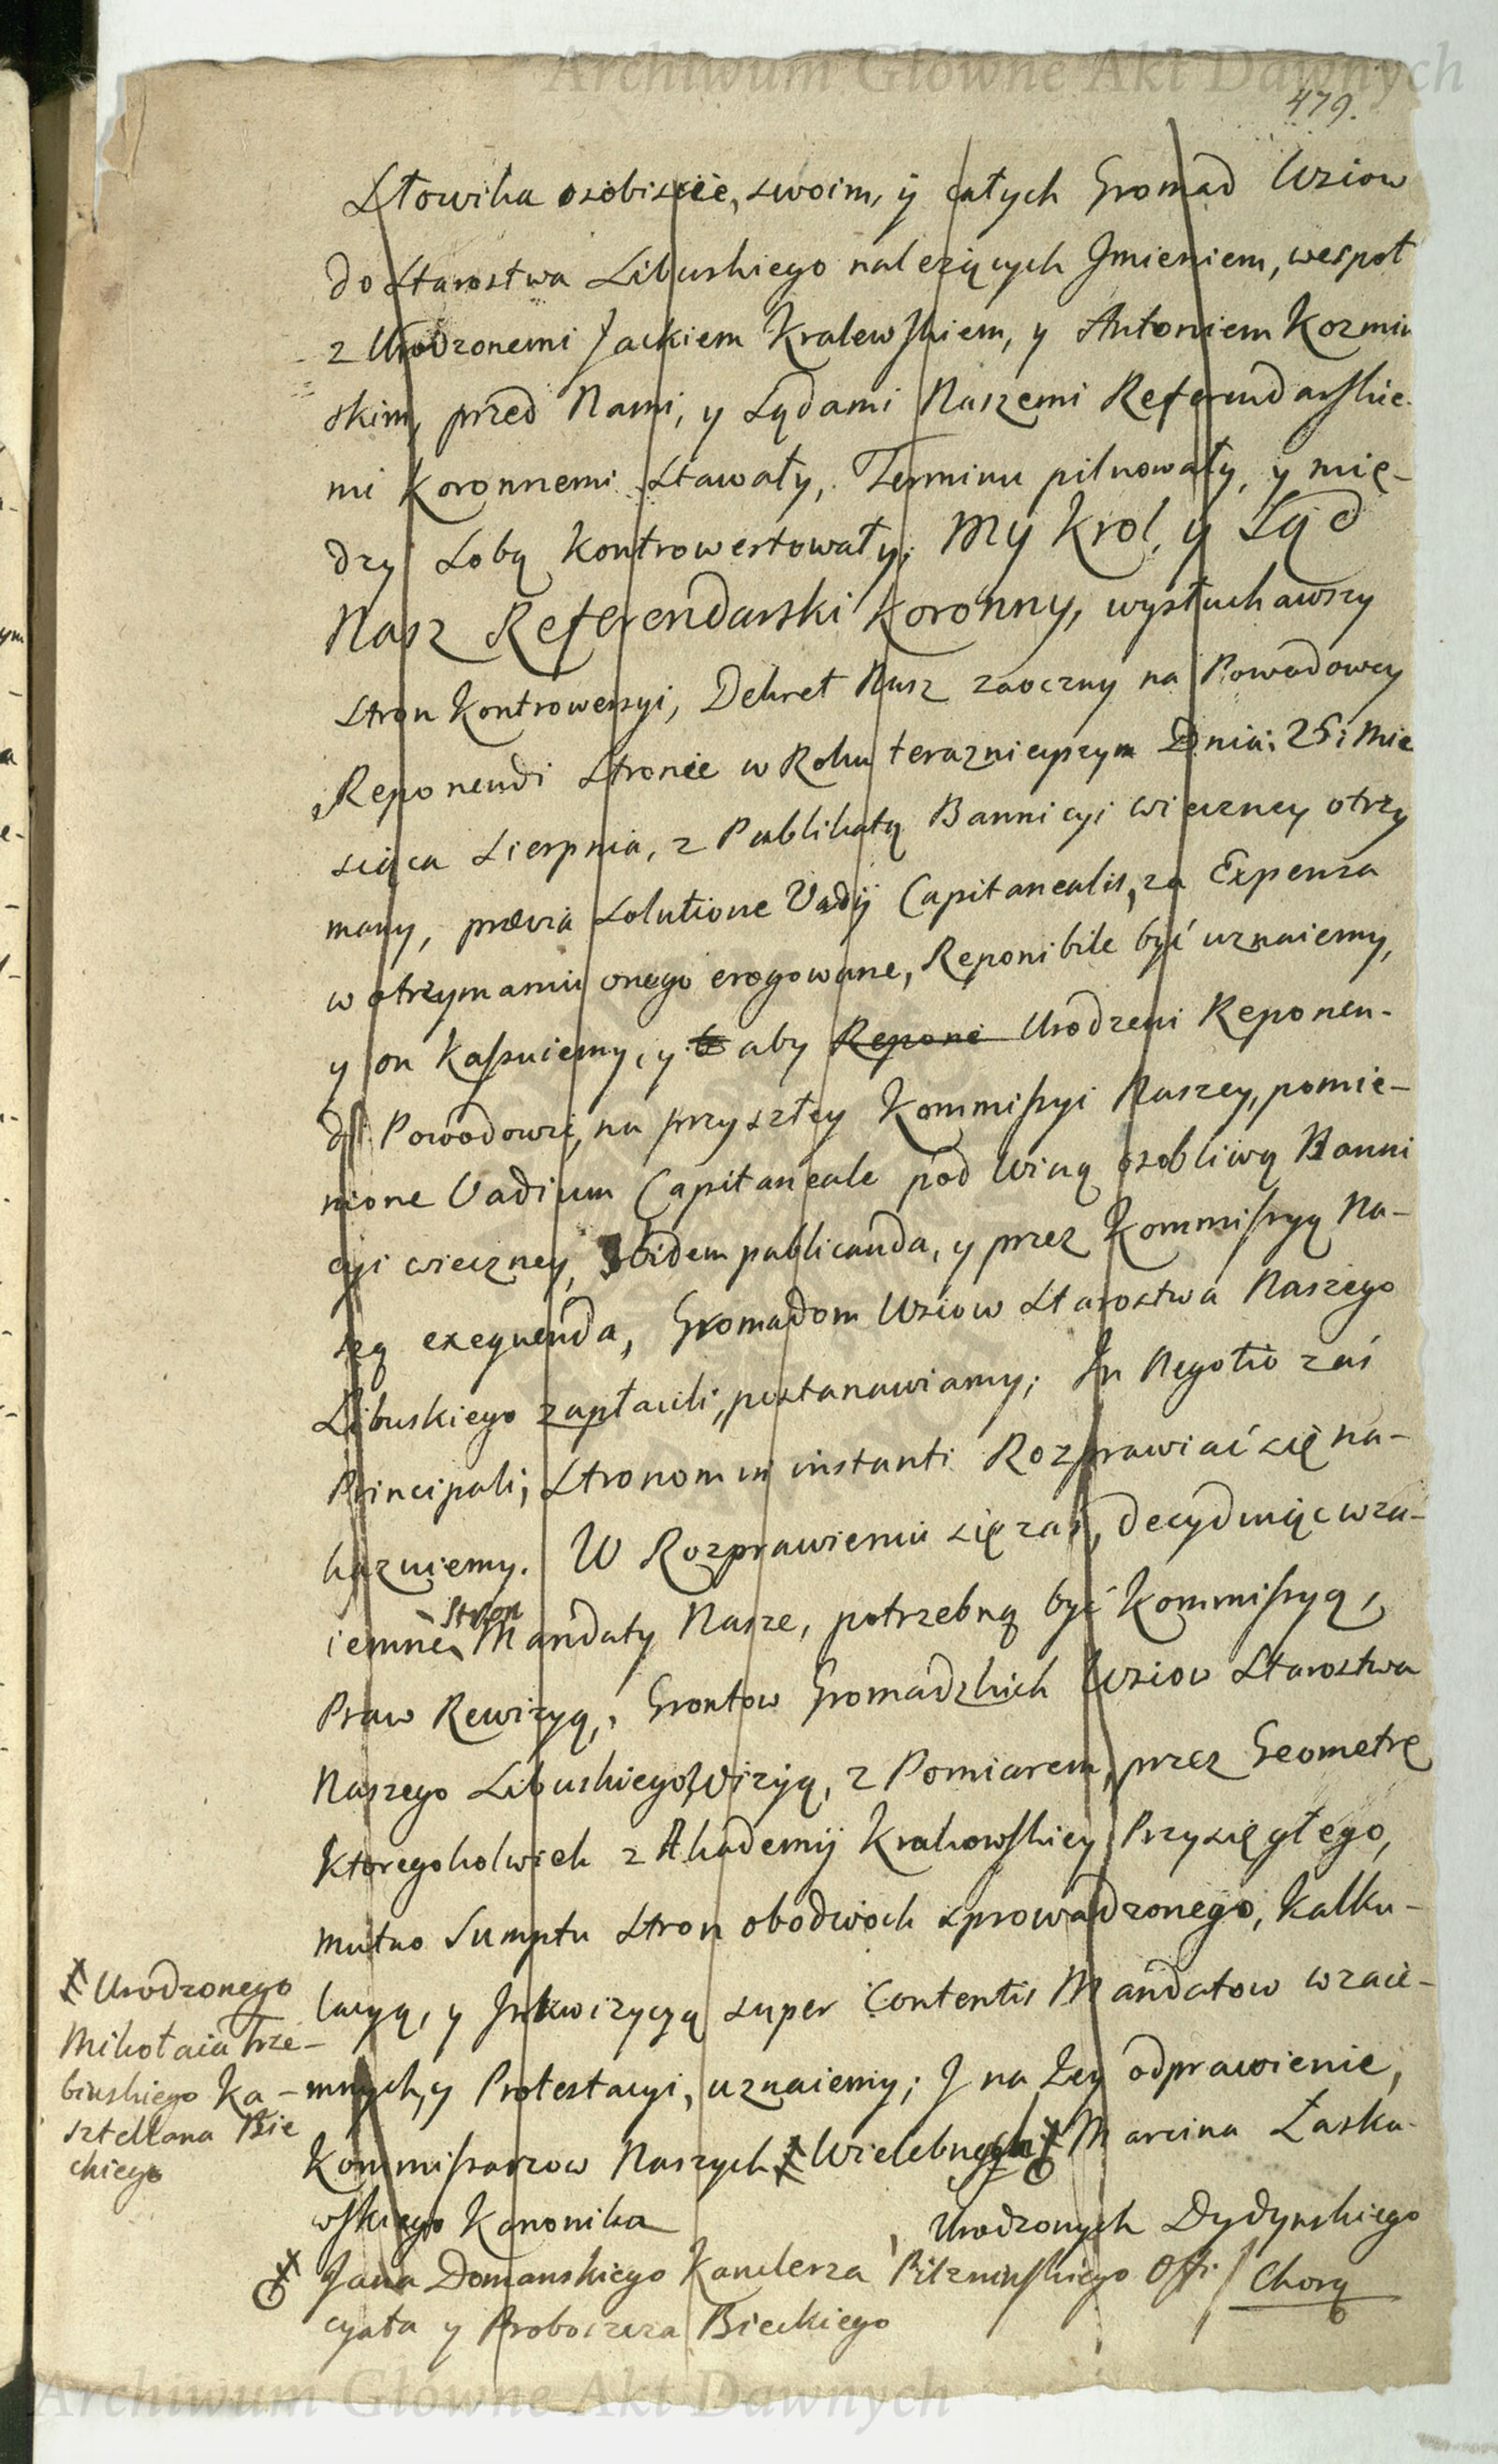 Archiwum Główne Akt Dawnych
479.
Słowika osobiscie, swoim, y całych Gromad Wsiow
do Starostwa Libuskiego nalezących Jmieniem, wespoł
z Urodzonemi Jackiem Kralewskiem, y Antoniem Kozmin
skim, przed Nami, y Sądami Naszemi Referendarskie-
mi Koronnemi Stawały, Terminu pilnowały, y mię-
dzy Sobą Kontrowertowały; My Krol, y Sąd
Nasz Referendarski Koronny, wysłuchawszy
Stron Kontrowersyi, Dekret Nasz zaoczny na Powodowey
Reponendi Stronie w Roku teraznieyszym Dnia: 25: Mie
siąca Sierpnia, z Publikatą Bannicyi wieczney otrzy
many, prævia Solutione Vadij Capitanealis, za Expensa
w otrzymaniu onego erogowane, Reponibile być uznaiemy,
y on Kassuiemy, y aby Repone Urodzeni Reponen-
ds Powodowie, na przyszłey Kommissyi Naszey, pomie-
nione Vadium Capitaneale pod Winą osobliwą Banni
cyi wieczney, Ibidem publicanda, y przez Kommissyą Na-
szą exequenda, Gromadom Wsiow Starostwa Naszego
Libuskiego zapłacili, postanawiamy; In Negotio zaś
Principali, Stronom in instanti Rozprawiać się na-
kazuiemy. W Rozprawieniu się zaś, decyduiąc wza-
iemne Stron Mandaty Nasze, potrzebną być Kommissyą,
Praw Rewizyą, Grontow Gromadzkich Wsiow Starostwa
Naszego Libuskiego, Wizyą, z Pomiarem, przez Geometrę
Ktoregokolwiek z Akademij Krakowskiey Przysięgłego,
mutuo Sumptu Stron obodwoch sprowadzonego, Kalku-
lacyą, y Inkwizycyą super Contentis Mandatow wzaie-
mnych, y Protestacyi, uznaiemy; J na Jey odprawienie,
Kommissarzow Naszych Wielebnych Marcina Łasko-
wskiego Kanonika , Urodzonych Dydynskiego
Jana Domanskiego Kanclerza Pilzninskiego Offi
cyała y Proboszcza Bieckiego
Chorą
Urodzonego
Mikołaia Trze-
binskiego Ka-
sztellana Bie
ckiego
Archiwum Główne Akt Dawnych